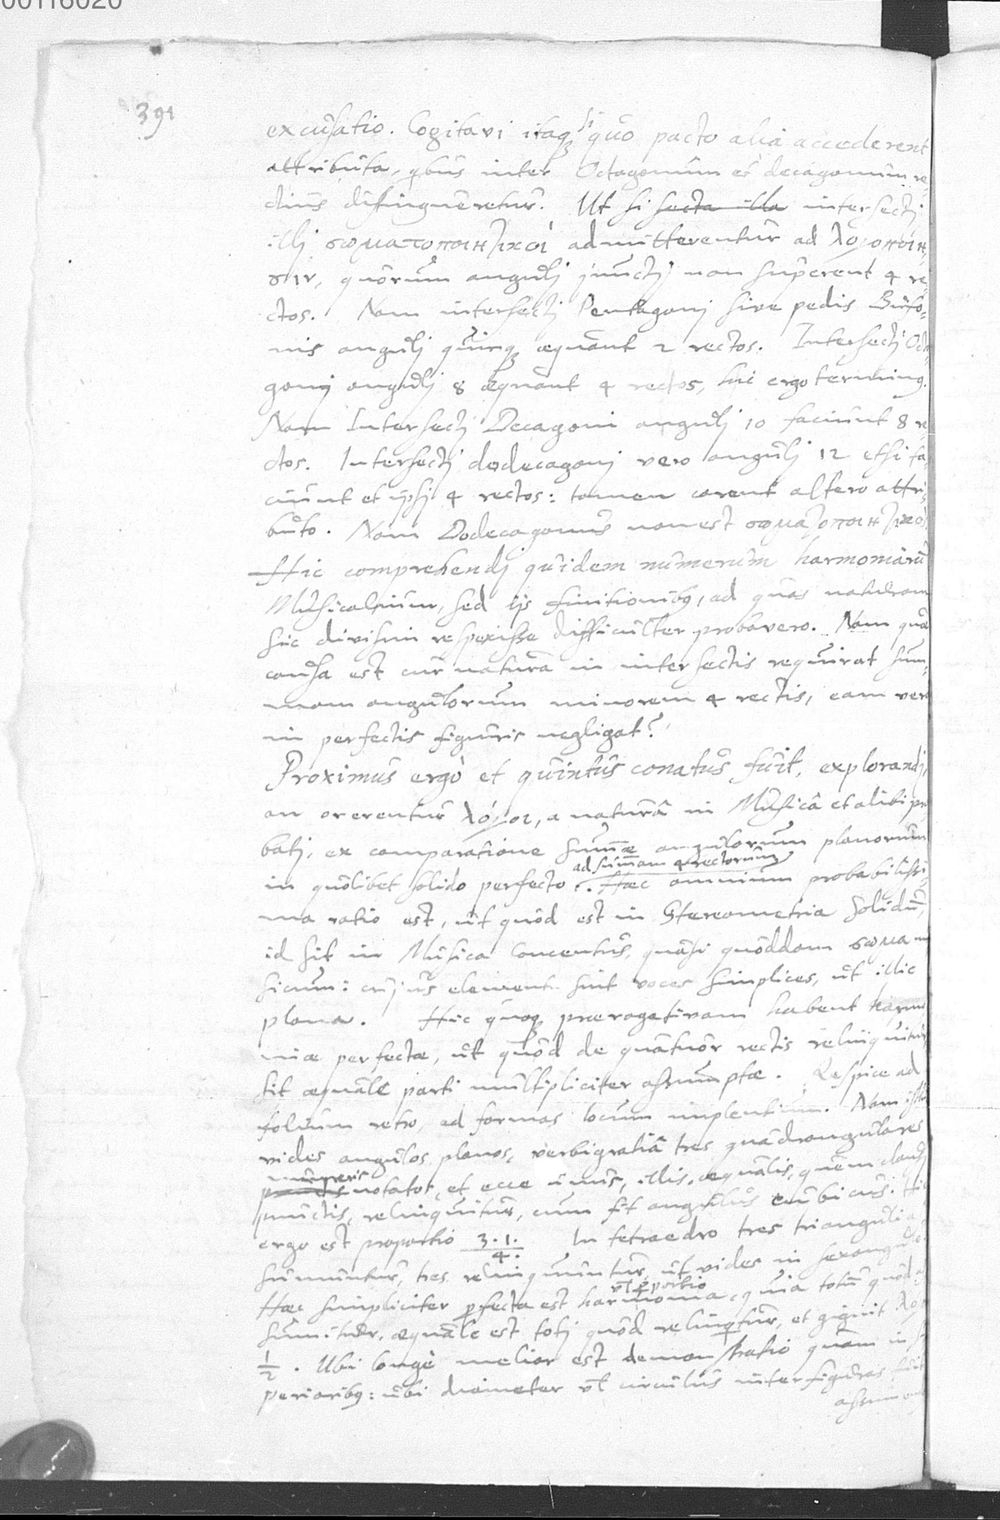 00116020
391
excusatio. Cogitavi itaq; si quo pacto alia accederent
attributa, qbus inter Octogonum et decagonum re-
ctius distingueretur. Ut si secta illa intersecti
illi σωματοποιητικοὶ admitterentur ad λογοποίη-
σιν, quorum anguli juncti non superent 4 re-
ctos. Nam intersecti Pentagoni sive pedis Bufo-
nis anguli quinq; æquant 2 rectos. Intersecti Octo
goni anguli 8 æquant 4 rectos, hic ergo terminus.
Nam Intersecti Decagoni anguli 10 faciunt 8 re
ctos. Intersecti dodecagoni vero anguli 12 etsi fa-
ciunt et ipsi 4 rectos: tamen carent altero attri-
buto. Nam Dodecagonus non est σωματοποιητικός
Hic comprehendi quidem numerum harmoniarum
Musicalium, sed ijs finitionibus, ad quas naturam
sic divisim respexisse difficulter probavero. Nam quæ
causa est cur natura in intersectis requirat sum-
mam angulorum minorem 4 rectis, eam vero
in perfectis figuris negligat?
Proximus ergo et quintus conatus fuit, explorandi,
an orerentur λόγοι, a natura in Musicâ et alibi pro
bati, ex comparatione summæ angulorum planorum
ad summam 4 rectorum
in quolibet solido perfecto. Hæc omnium probabilissi-
ma ratio est, ut quod est in Stereometria solidum,
id sit in Musica Concentus, quasi quoddam σῶμα mu
sicum: cujus elementa sint voces simplices, ut illic
plana. Hic quoq; prærogativam habent harmo
niæ perfectæ, ut quod de quatuor rectis relinquitur
sit æquale parti multipliciter assumptæ. Respice ad
folium retro, ad formas locum implentium. Nam
vides angulos planos, verbi gratiâ tres quadrangulares
numeris
punctis notatos, et ecce unus, illis æqualis, quem claudi
punctis, relinquitur, cum fit angulus cubicus. Hic
ergo est proportio 3.1./4. In tetraedro tres trianguli a
sumuntur, tres relinquuntur, ut vides in sexangulo.
ut proportio
Hæc simpliciter perfecta est harmonia, quia totum quod as
sumitur, æquale est toti quod relinquitur, et gignit λόγον
1/2. Ubi longè melior est demonstratio quam in su
perioribus: ubi diameter ut circulus inter figuras fuit